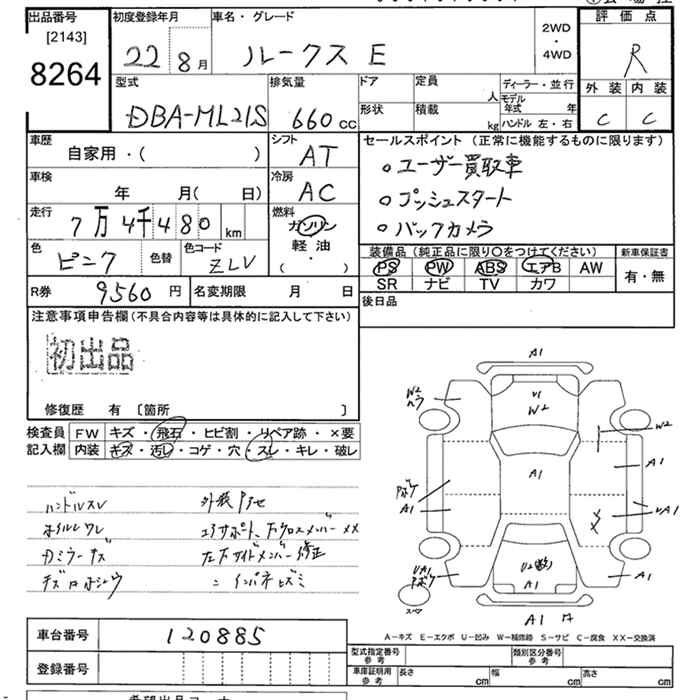 出品番号
[2143]
8264
初度登録年月
22 8月
車名・グレード
ルークス E
2WD
・
4WD
評価点
R
外装 内装
C C
型式
DBA-ML21S
排気量
660 cc
ドア
定員
人
形状
積載
kg
ディーラー・並行
モデル年式 年
ハンドル 左・右
車歴
自家用・( )
シフト
AT
セールスポイント (正常に機能するものに限ります)
。ユーザー買取車
。プッシュスタート
。バックカメラ
車検
年 月( 日)
冷房
AC
走行
7万4千480 km
燃料
ガソリン
軽油
( )
色
ピンク
色替
色コード
ZLV
装備品 (純正品に限り○をつけてください)
PS PW ABS エアB AW
SR ナビ TV カワ
新車保証書
有・無
R券
9560 円
名変期限 月 日
後日品
注意事項申告欄 (不具合内容等は具体的に記入して下さい)
初出品
修復歴 有 [箇所 ]
検査員
記入欄
FW キズ・飛石・ヒビ割・リペア跡・×要
内装 キズ・汚レ・コゲ・穴・スレ・キレ・破レ
ハンドルスレ
カミラーキズ
A1
W2
V1
W2
W2
A1
A1
A1
UA1
UA1
A1
A1
A1
スペア
A-キズ E-エクボ U-凹み W-補修跡 S-サビ C-腐食 XX-交換済
車台番号
120885
登録番号
型式指定番号
参考
類別区分番号
参考
車庫証明用
参考
長さ cm
幅 cm
高さ cm
希望出品コーナー